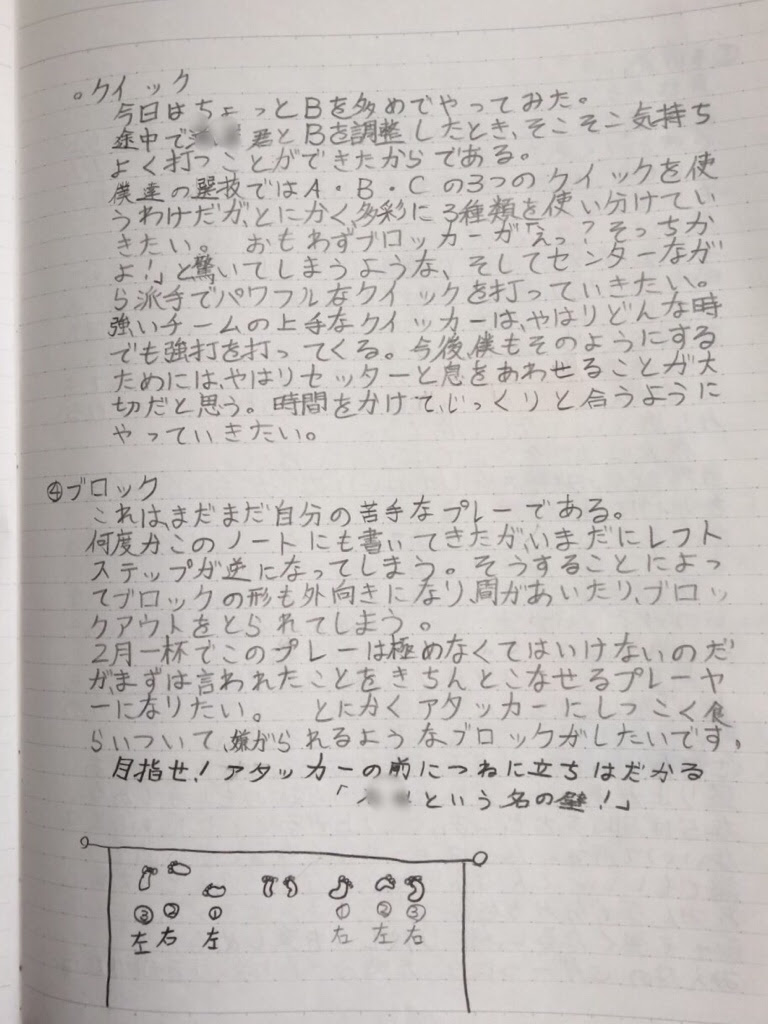 。クイック
今日はちょっとBを多めでやってみた。
途中で 君とBを調整したとき、そこそこ気持ち
よく打つことができたからである。
僕達の選技ではA・B・Cの3つのクイックを使
うわけだが、とにかく、多彩に3種類を使い分けてい
きたい。 おもわずブロッカーが「えっ?そっちか
よ!」と驚いてしまうような、そしてセンターなが
ら派手でパワフルなクイックを打っていきたい。
強いチームの上手なクイッカーは、やはりどんな時
でも強打を打ってくる。今後、僕もそのようにする
ためには、やはりセッターと息をあわせることが大
切だと思う。時間をかけて、じっくりと合うように
やっていきたい。
④ブロック
これは、まだまだ自分の苦手なプレーである。
何度かこのノートにも書いてきたが、いまだにレフト
ステップが逆になってしまう。そうすることによっ
てブロックの形も外向きになり、間があいたり、ブロッ
クアウトをとられてしまう。
2月一杯でこのプレーは極めなくてはいけないのだ
が、まずは言われたことをきちんとこなせるプレーヤ
ーになりたい。 とにかくアタッカーにしつこく食
らいついて、嫌がられるようなブロックがしたいです。
目指せ!アタッカーの前につねに立ちはだかる
「 という名の壁!」
③ ② ① ① ② ③
左 右 左 右 左 右